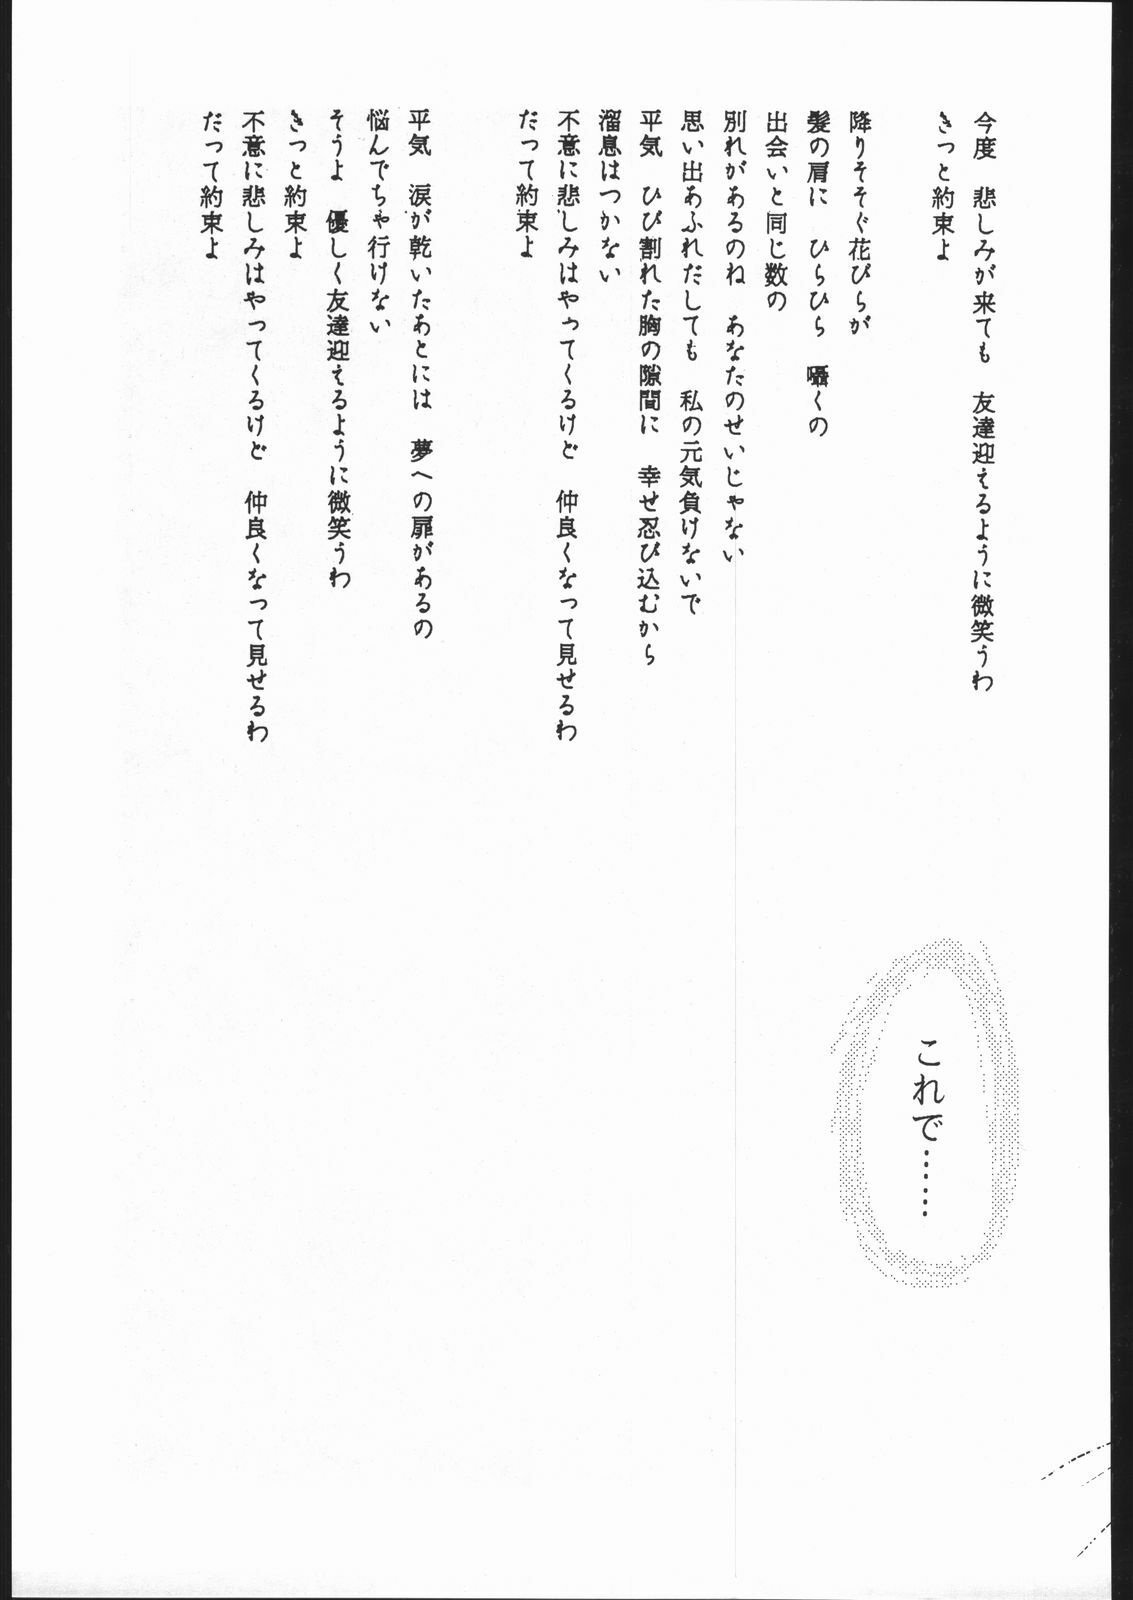 今度　悲しみが来ても　友達迎えるように微笑うわ
きっと約束よ
降りそそぐ花びらが
髪の肩に　ひらひら　囁くの
出会いと同じ数の
別れがあるのね　あなたのせいじゃない
思い出あふれだしても　私の元気負けないで
平気　ひび割れた胸の隙間に　幸せ忍び込むから
溜息はつかない
不意に悲しみはやってくるけど　仲良くなって見せるわ
だって約束よ
平気　涙が乾いたあとには　夢への扉があるの
悩んでちゃ行けない
そうよ　優しく友達迎えるように微笑うわ
きっと約束よ
不意に悲しみはやってくるけど　仲良くなって見せるわ
だって約束よ
これで……